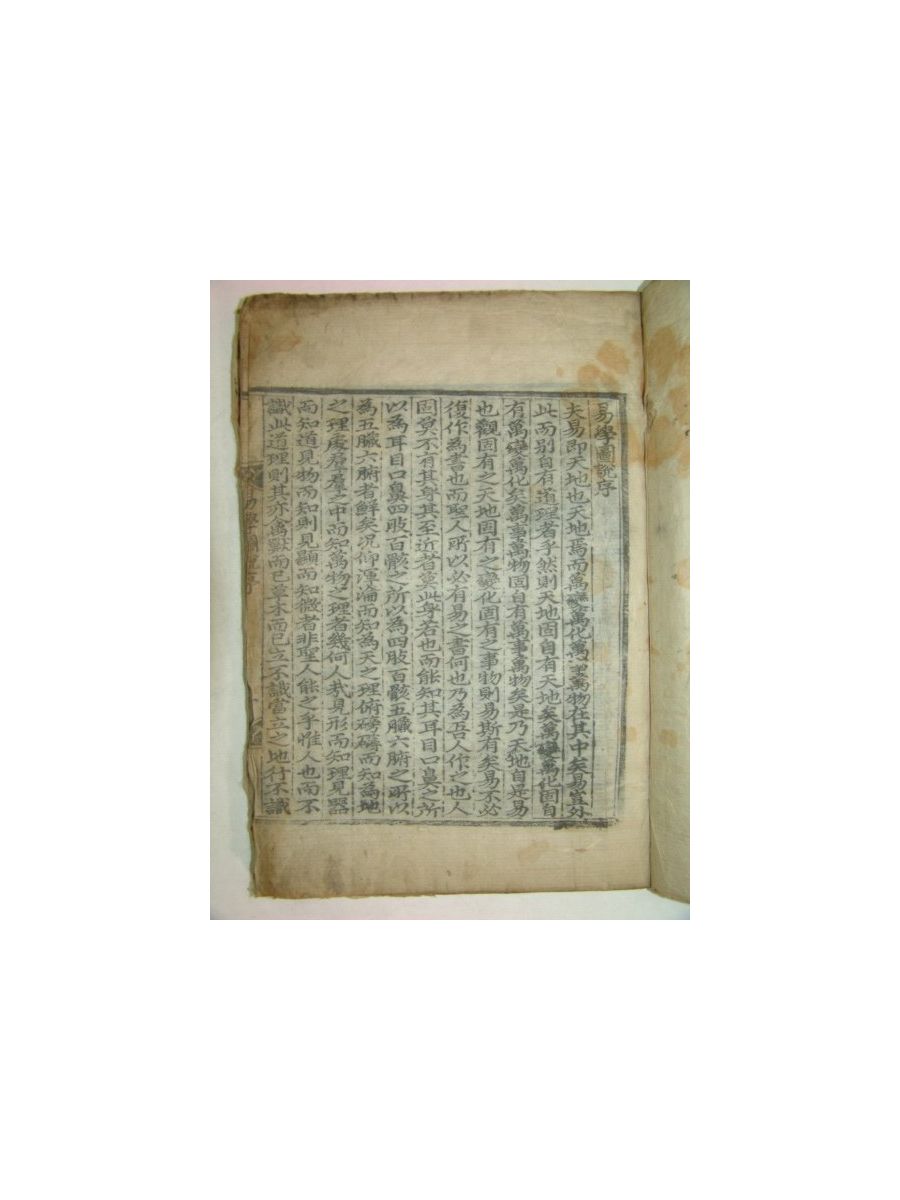 易學圖說序
夫易即天地也天地焉而萬變萬化萬事萬物在其中矣易豈外
此而別自有道理者乎然則天地固自有天地矣萬變萬化固自
有萬變萬化矣萬事萬物固自有萬事萬物矣是乃天地自是易
也觀固有之天地固有之變化固有之事物則易斯有矣易不必
復作為書也而聖人所以必有易之書何也乃為吾人作之也人
固莫不有其身其至近者莫此身若也而能知其耳目口鼻之所
以為耳目口鼻四肢百骸之所以為四肢百骸五臟六腑之所以
為五臟六腑者鮮矣況仰渾淪而知為天之理俯磅礡而知為地
之理處羣羣之中而知萬物之理者幾何人哉見形而知理見器
而知道見物而知則見顯而知微者非聖人能之乎惟人也而不
識此道理則其亦禽獸而已草木而已立不識當立之地行不識
易學圖說序